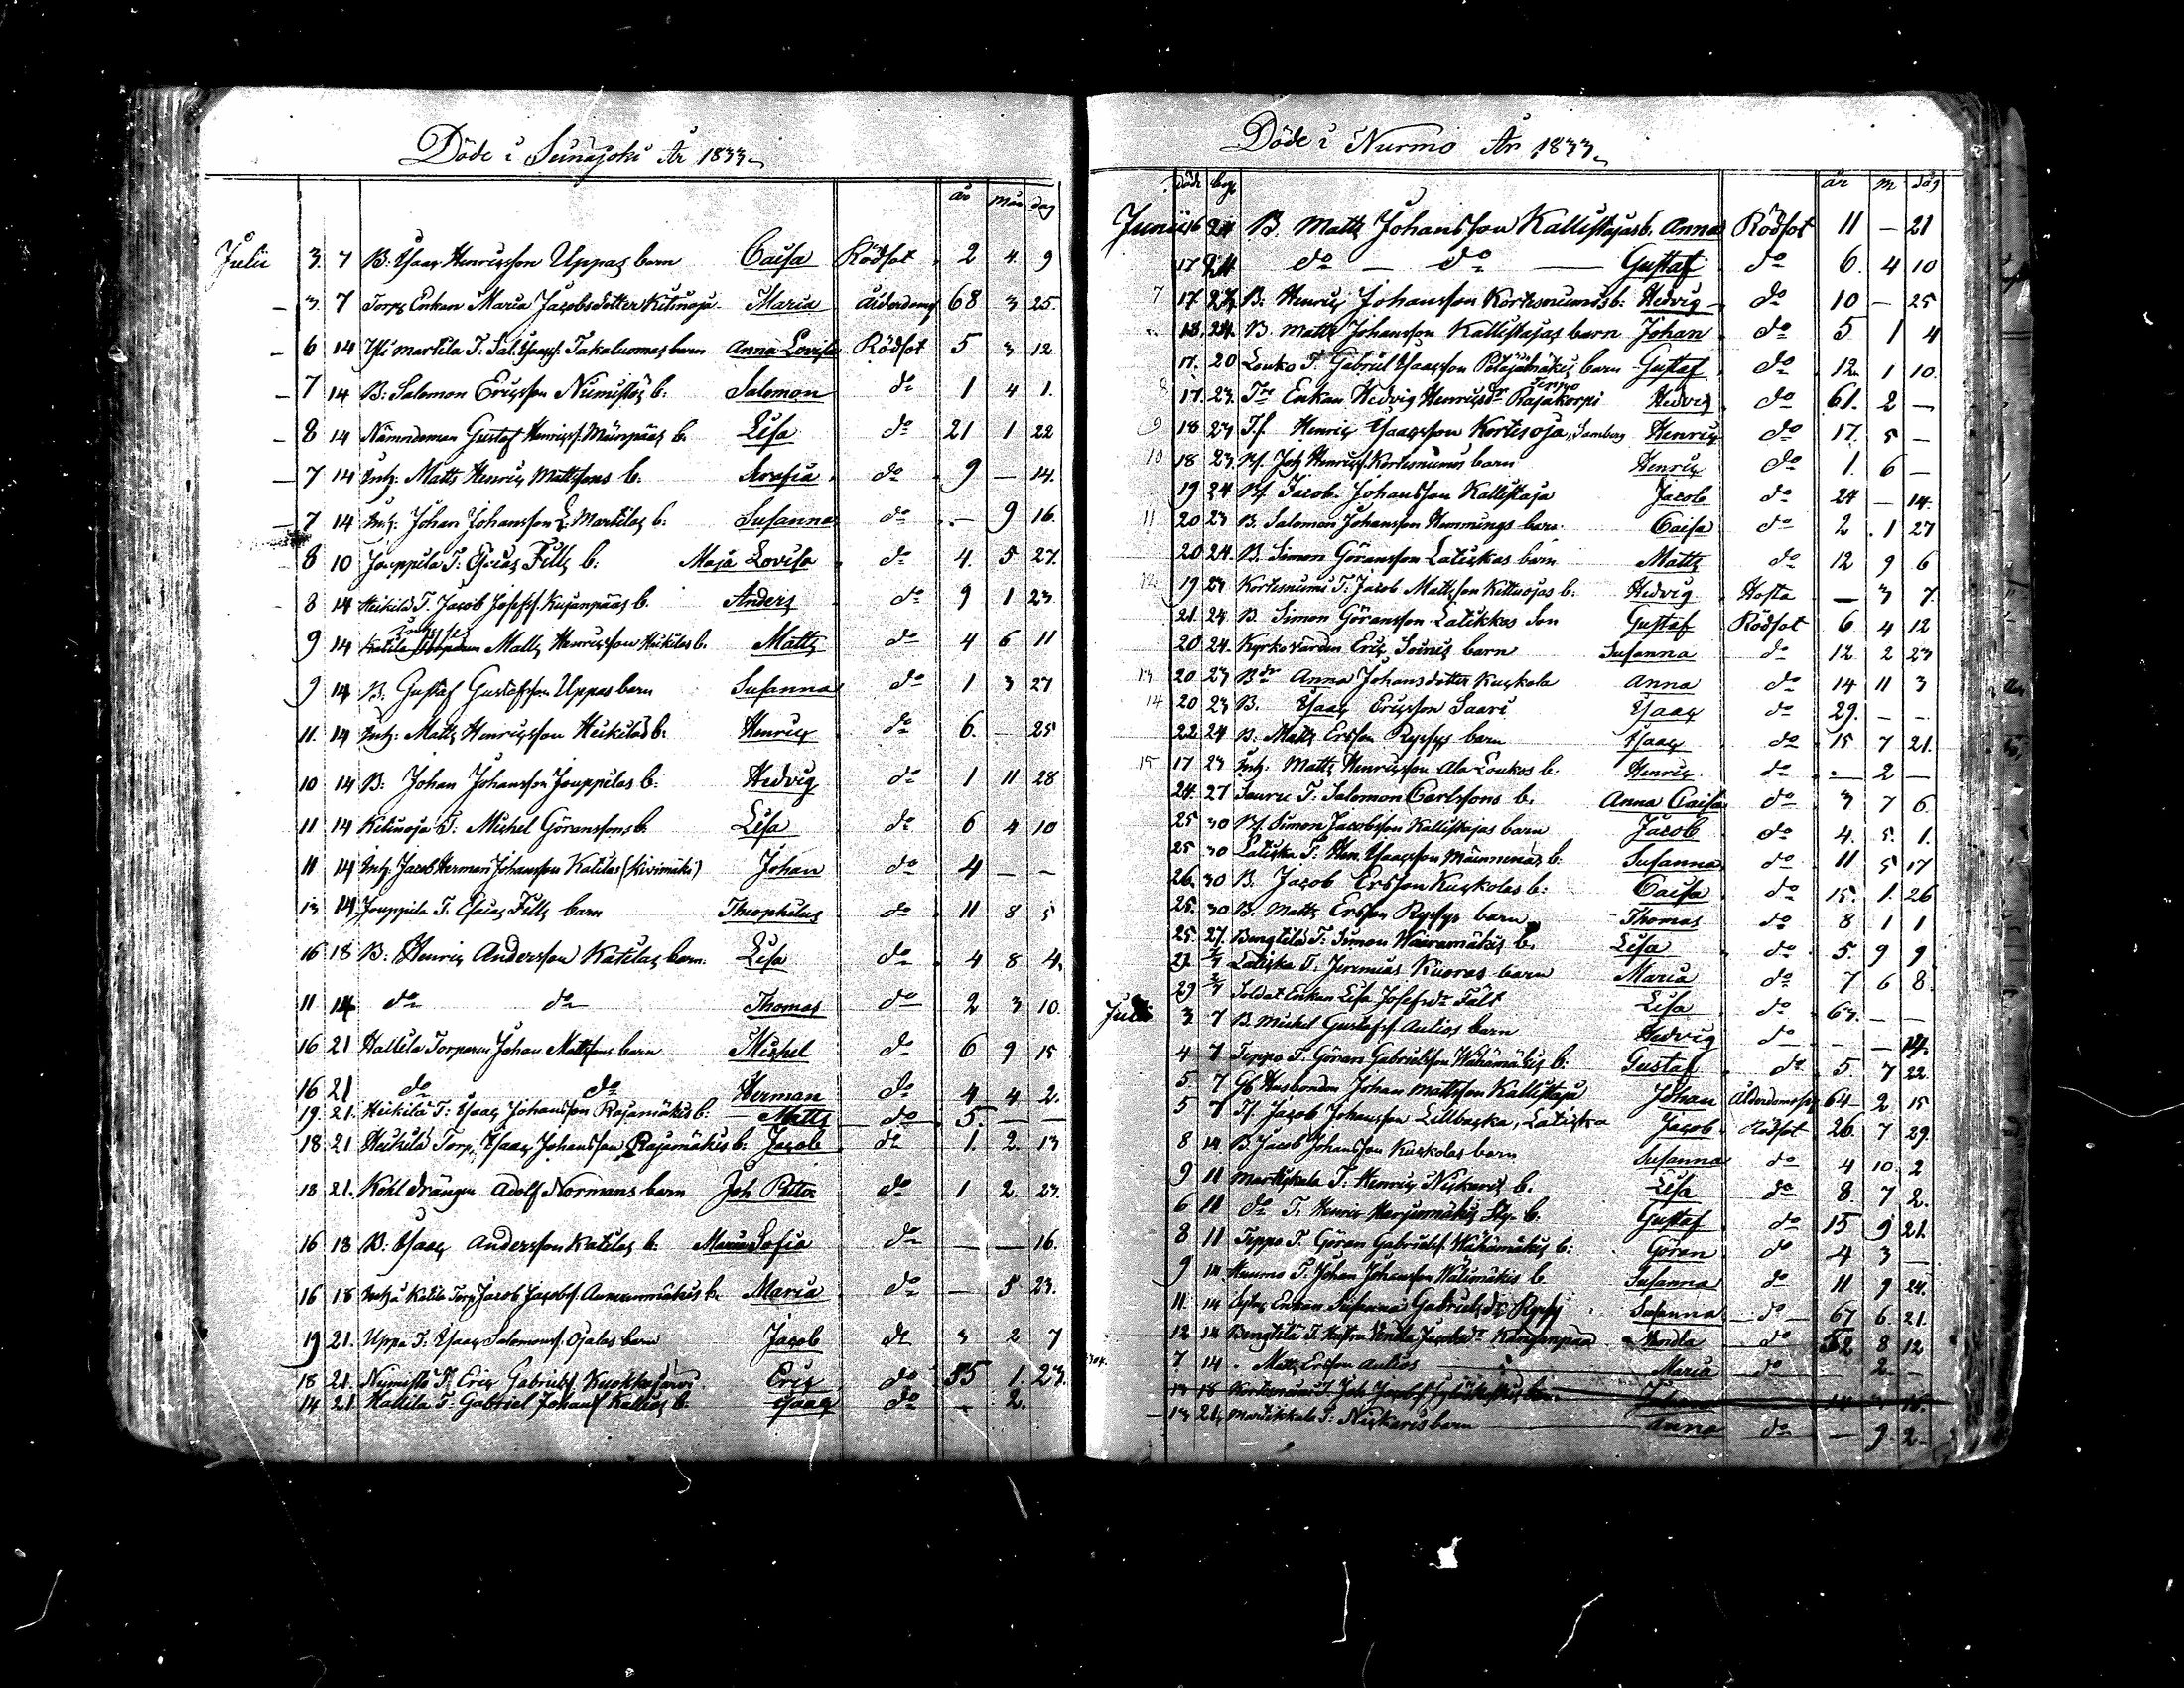 Döde i Seinäjoki År 1833
år mån dag
Julii 3 7 B: Isaac Henricsson Uppas barn Caisa Rödsot 2 4 9
– 3 7 Torp Enkan Maria Jacobsdotter Kitinoja Maria ålderdom 68 3 25
– 6 14 Yli Martila T: Sal. Isaacs. Takaluomas barn Anna Lovisa Rödsot 5 3 12
– 7 14 B: Salomon Ericsson Niemistös b: Salomon do 1 4 1
– 8 14 Nämndeman Gustaf Henricss. Mänpääs b. Lisa do 21 1 22
– 7 14 Inh: Matts Henric Mattssons b. Serafia do 9 – 14
– 7 14 Inh: Johan Johansson L. Martilas b: Susanna do – 9 16
8 10 Jouppila T: Esaias Fills b: Maja Lovisa do 4 5 27
8 14 Heikilä T. Jacob Josefss. Kujanpääs b. Anders do 9 1 23
9 14 Matts Henricsson Heikiläs b. Matts do 4 6 11
9 14 B. Gustaf Gustafsson Uppas barn Susanna do 1 3 27
11 14 Inh: Matts Henricsson Heikiläs b: Henric do 6 – 25
10 14 B: Johan Johansson Jouppilas b: Hedvig do 1 11 28
11 14 Kitinoja T: Michel Göranssons b. Lisa do 6 4 10
11 14 Inh: Jacob Herman Johansson Katilas (Kivimäki) Johan do 4 – –
13 14 Jouppila T. Esaias Fills barn Theophilus do 11 8 5
16 18 B: Henric Andersson Katilas barn: Lisa do 4 8 4
11 14 do do Thomas do 2 3 10
16 21 Hallila Torparen Johan Mattssons barn Michel do 6 9 15
16 21 do do Herman do 4 4 2
19 21 Heikilä T: Isaac Johansson Rajamäkis b: Matts do 5 – –
18 21 Heikilä Torp. Isaac Johansson Rajamäkis b: Jacob do 1 2 13
18 21 Kohldrängen Adolf Normans barn Joh Petter do 1 2 23
16 18 B. Isaac Andersson Katilas b. Maria Sofia do – – 16
16 18 Inh: å Katila Torp Jacob Jacobs. b. Maria do – 5 23
19 21 Uppa T: Isaac Salomons. Ojalas barn Jacob do 3 2 7
18 21 Niemistö T: Eric Gabriels. Eric do 55 1 23
14 21 Hallila T: Gabriel Johans. Kallios b: Isaac do – 2
Döde i Nurmo År 1833
död beg år m dag
Junii 16 24 B. Matts Johansson Kallistajas b. Anna Rödsot 11 – 21
17 24 do – do – Gustaf do 6 4 10
7 17 23 B: Henric Johansson Kortesniemis b: Hedvig do 10 – 25
18 24 B. Matts Johansson Kallistajas barn Johan do 5 1 4
17 20 Louko T. Gabriel Isaacsson Petäjämäkis barn Gustaf do 12 1 10
Seppo
8 17 23 Enkan Hedvig Henricsdr Rajakorpi Hedvig do 61 2 –
9 18 23 Henric Isaacsson Kortesoja, Henric do 17 5 –
10 18 23 Joh Henrics. Kortesniemis barn Henric do 1 6 –
19 24 Jacob Johansson Kallistaja Jacob do 24 – 14
11 20 23 B. Salomon Johansson Hemmings barn Caisa do 2 1 27
20 24 B. Simon Göransson Latickas barn Matts do 12 9 6
12 19 23 Kortesniemi T. Jacob Mattsson Kittuojas b: Hedvig Hosta – 3 7
21 24 B. Simon Göransson Latikkas Son Gustaf Rödsot 6 4 12
20 24 Kyrkovärden Eric Soinis barn Susanna do 12 2 23
13 20 23 Bdr Anna Johansdotter Kuckola Anna do 14 11 3
14 20 23 B. Isaac Ericsson Saari Isaac do 29 – –
22 24 B. Matts Ersson Rypsys barn Isaac do 15 7 21
15 17 23 Inh. Matts Henricsson Ala Loukos b: Henric do – 2 –
24 27 Sauru T: Salomon Carlssons b. Anna Caisa do 3 7 6
25 30 Simon Jacobsson Kallistajas barn Jacob do 4 5 1
25 30 Laticka T: Hen. Isaacsson b. Susanna do 11 5 17
26 30 B. Jacob Ersson Kuckolas b: Caisa do 15 1 26
25 30 B. Matts Ersson Rypsys barn Thomas do 8 1 1
25 27 Bengtilä T: Simon Waaramäkis b. Lisa do 5 9 9
Laticka T. Jeremias Kuoras barn Maria do 7 6 8
29 Soldat Enkan Lisa Josefsdr Fält Lisa do 63 – –
Julii 3 7 B. Michel Gustafss. Aulios barn Hedvig do – – 14
4 7 Seppo T. Göran Gabrielsson Wähämäkis b: Gustaf do 5 7 22
5 7 Gl Husbonden Johan Mattsson Kallistaja Johan Ålderdoms 64 2 15
5 7 Jacob Johansson Lillbacka, Laticka Jacob Rödsot 26 7 29
8 14 B. Jacob Johansson Kuckolas barn Susanna do 4 10 2
9 11 Martickala T: Henric Nickaris b. Lisa do 8 7 2
6 11 do T. Henric Harjumäkis b. Gustaf do 15 9 21
8 11 Seppo T. Göran Gabriels. Wähämäkis b: Göran do 4 3 –
9 14 T: Johan Johansson Wälimäkis b. Susanna do 11 9 24
11 14 Enkan Susanna Gabrielsdr Rypsy Susanna do 67 6 21
12 14 Bengtilä T. Hustru Vendla Jacobsdr Vendla do 52 8 12
7 14 Matts Ersson Aulios Maria do – 2 –
13 18 Kortesniemi T. Joh Johan
13 21 Martikkala T: Nickaris barn Anna do – 9 2